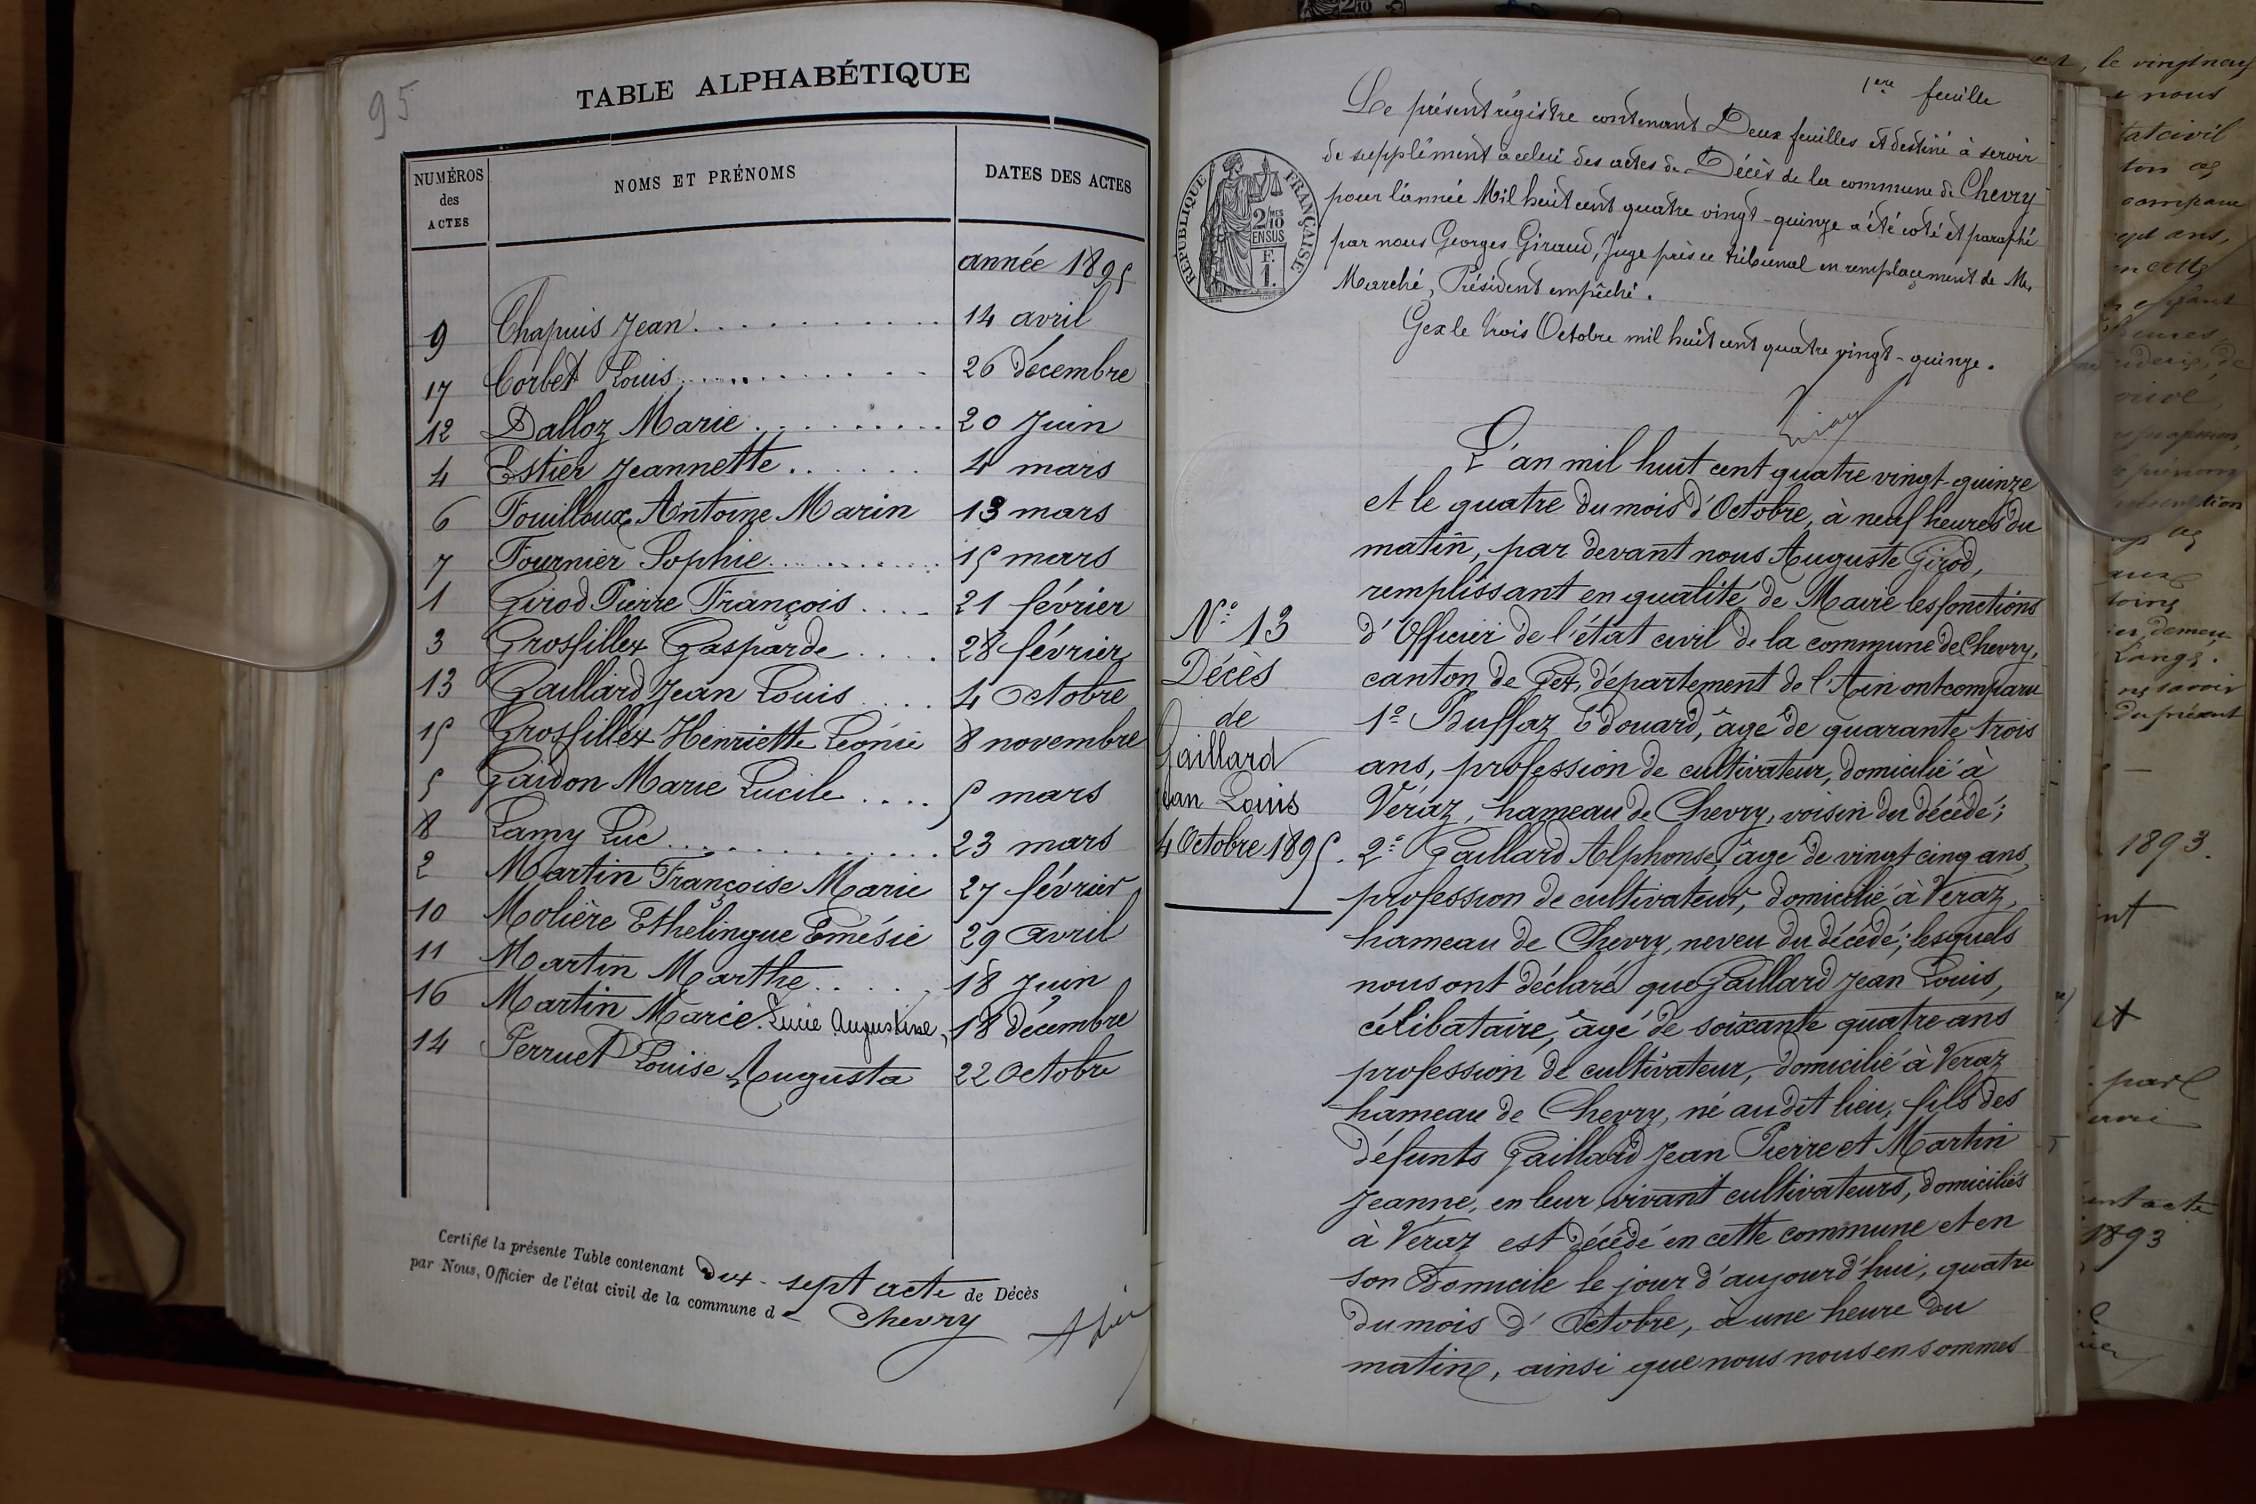 95
TABLE ALPHABÉTIQUE
NUMÉROS des ACTES
NOMS ET PRÉNOMS
DATES DES ACTES
année 1895
9 Chapuis Jean 14 avril
17 Corbet Louis 26 décembre
12 Dalloz Marie 20 Juin
4 Estier Jeannette 4 mars
6 Fouilloux Antoine Marin 13 mars
7 Fournier Sophie 15 mars
1 Girod Pierre François 21 février
3 Grosfillex Gasparde 28 février
13 Gaillard Jean Louis 4 Octobre
15 Grosfillex Henriette Léonie 8 novembre
5 Gaidon Marie Lucile 5 mars
8 Lamy Luc 23 mars
2 Martin Françoise Marie 27 février
10 Molière Ethelingue Emésie 29 avril
11 Martin Marthe 18 Juin
16 Martin Marie Lucie Augustine 18 décembre
14 Perruet Louise Augusta 22 Octobre
Certifié la présente Table contenant dix-sept acte de Décès
par Nous, Officier de l'état civil de la commune de Chevry
1ere feuille
Le présent régistre contenant Deux feuilles et destiné à servir
de supplément à celui des actes de Décès de la commune de Chevry
pour l'année Mil huit cent quatre vingt-quinze a été coté et paraphé
par nous Georges Giraud, Juge près ce tribunal en remplaçement de Mr
Marché, Président empêché.
Gex le trois Octobre mil huit cent quatre vingt-quinze.
RÉPUBLIQUE FRANÇAISE
2/10 MES
EN SUS
F.
1.
L'an mil huit cent quatre vingt-quinze
et le quatre du mois d'Octobre, à neuf heures du
matin, par devant nous Auguste Girod,
remplissant en qualité de Maire les fonctions
d'Officier de l'état civil de la commune de Chevry,
canton de Gex, département de l'Ain ont comparu
1º Buffaz Edouard, âgé de quarante trois
ans, profession de cultivateur, domicilié à
Véraz, hameau de Chevry, voisin du décédé;
2º Gaillard Alphonse, âgé de vingt cinq ans,
profession de cultivateur, domicilié à Véraz,
hameau de Chevry, neveu du décédé; lesquels
nous ont déclaré que Gaillard Jean Louis,
célibataire, âgé de soixante quatre ans
profession de cultivateur, domicilié à Veraz
hameau de Chevry, né au dit lieu, fils des
défunts Gaillard Jean Pierre et Martin
Jeanne, en leur vivant cultivateurs, domiciliés
à Véraz est décédé en cette commune et en
son Domicile le jour d'aujourd'hui, quatre
du mois d'Octobre, à une heure du
matin, ainsi que nous nous en sommes
Nº 13
Décès
de
Gaillard
Jean Louis
4 Octobre 1895.
le vingt neuf
nous
1893.
et
1893